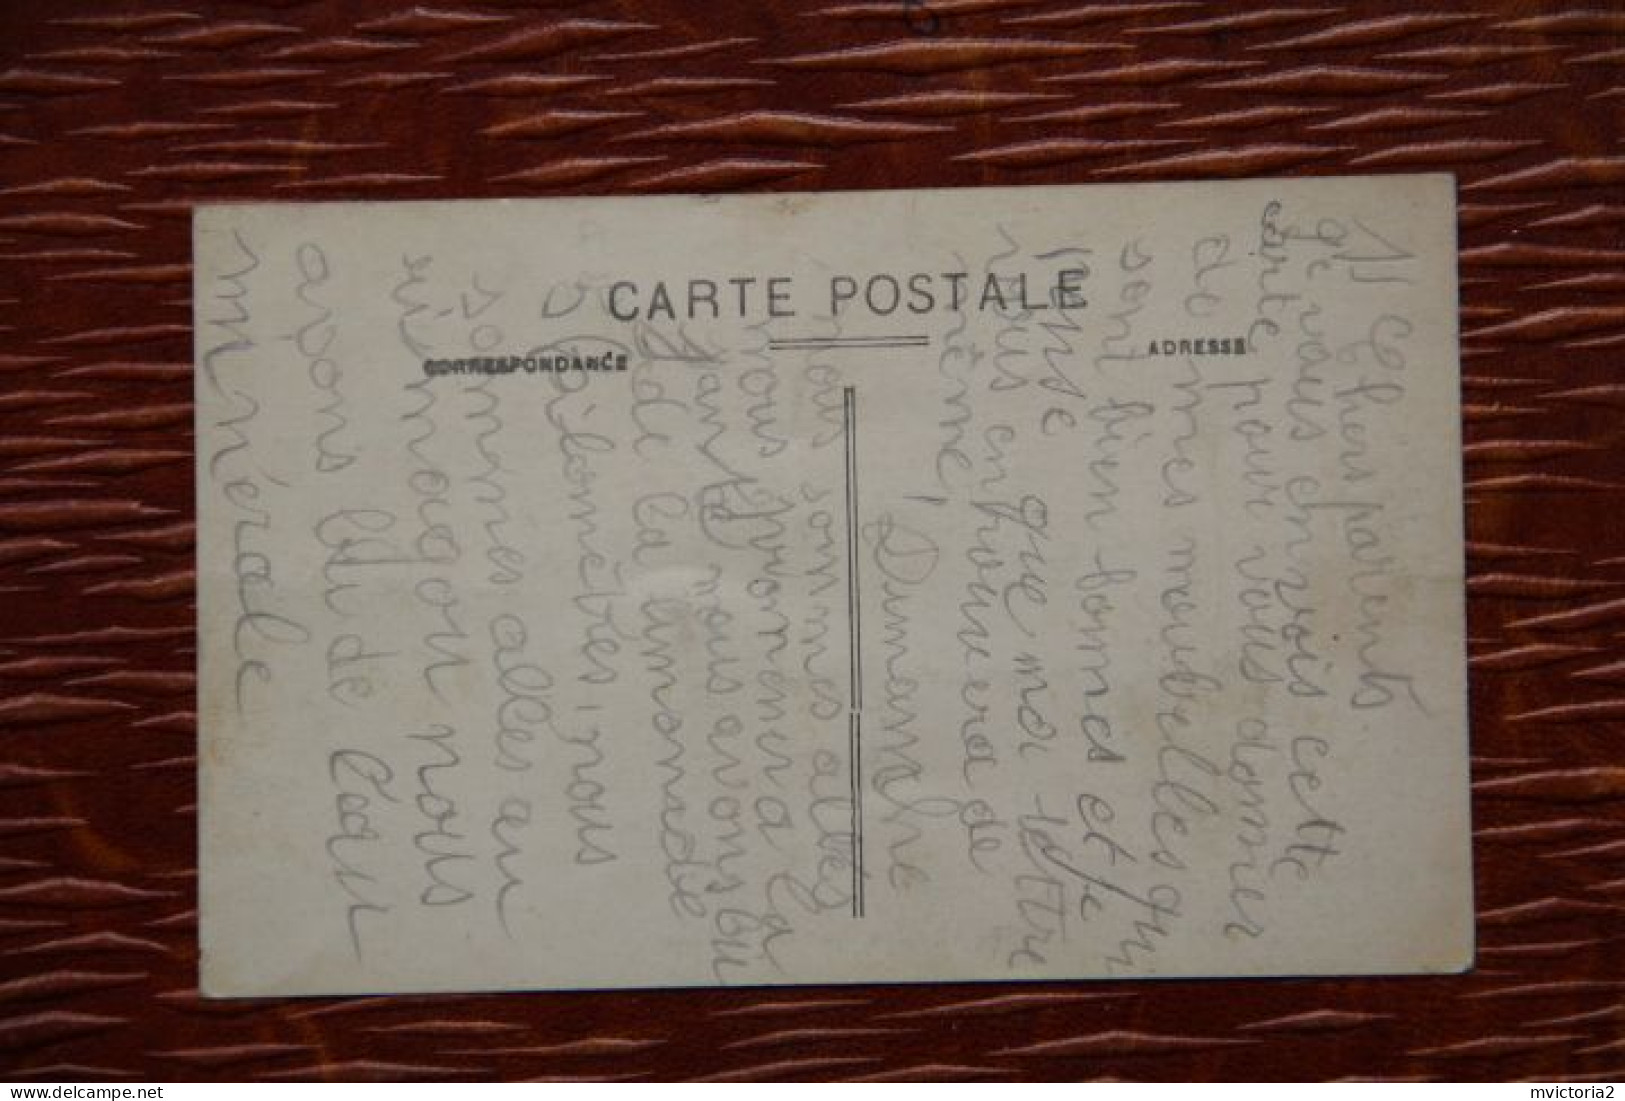 CARTE POSTALE
CORRESPONDANCE
ADRESSE
Chers parents.
Je vous envois cette
carte pour vous donner
de mes nouvelles qui
sont bien bonnes et je
pense que ma lettre
vous en
même, Dimanche
nous sommes allés
nous promener a la
nous avons bu
de la limonade
kilomètres, nous
sommes allés au
nous
avons bu de l'eau
minérale
delcampe.net
mvictoria2